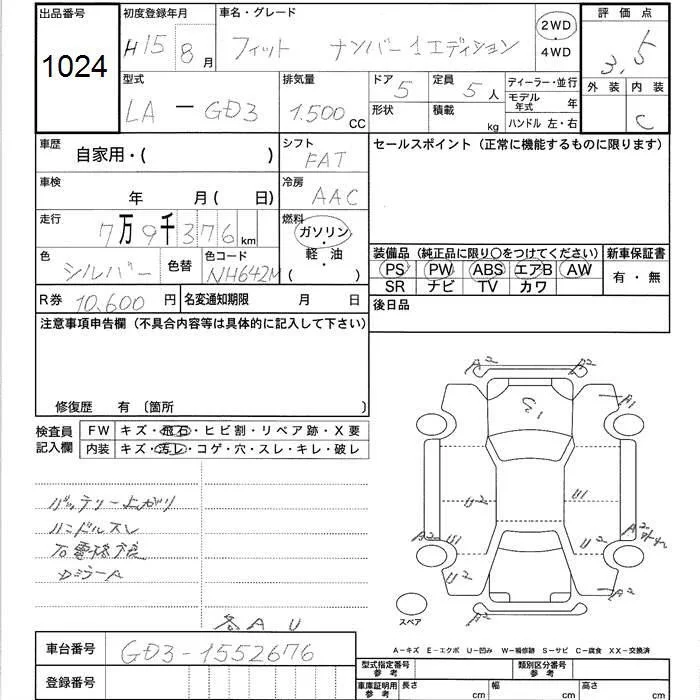 出品番号
1024
初度登録年月
H15 8 月
車名・グレード
フィット ナンバー1エディション
2WD
4WD
評価点
3.5
外装 内装
C
型式
LA - GD3
排気量
1.500 CC
ドア
5
定員
5 人
形状
積載
kg
ディーラー・並行
モデル年式 年
ハンドル 左・右
車歴
自家用・( )
シフト
FAT
セールスポイント (正常に機能するものに限ります)
車検
年 月( 日)
冷房
AAC
走行
7万9千376 km
燃料
ガソリン
・
軽油
( )
色
シルバー
色替
色コード
NH642M
装備品 (純正品に限り○をつけてください)
PS PW ABS エアB AW
SR ナビ TV カワ
新車保証書
有・無
R券 10.600 円
名変通知期限 月 日
後日品
注意事項申告欄 (不具合内容等は具体的に記入して下さい)
修復歴 有 〔箇所 〕
検査員
記入欄
FW キズ・飛石・ヒビ割・リペア跡・X要
内装 キズ・汚レ・コゲ・穴・スレ・キレ・破レ
バッテリー上がり
ハンドルスレ
各AU
A2 A2
A1
G1
U2 U1
U1 U2
A2
A2
U2 U2
A2 A2
スペア
A-キズ E-エクボ U-凹み W-補修跡 S-サビ C-腐食 XX-交換済
車台番号
GD3-1552676
登録番号
型式指定番号
参考
類別区分番号
参考
車庫証明用
参考
長さ cm
幅 cm
高さ cm